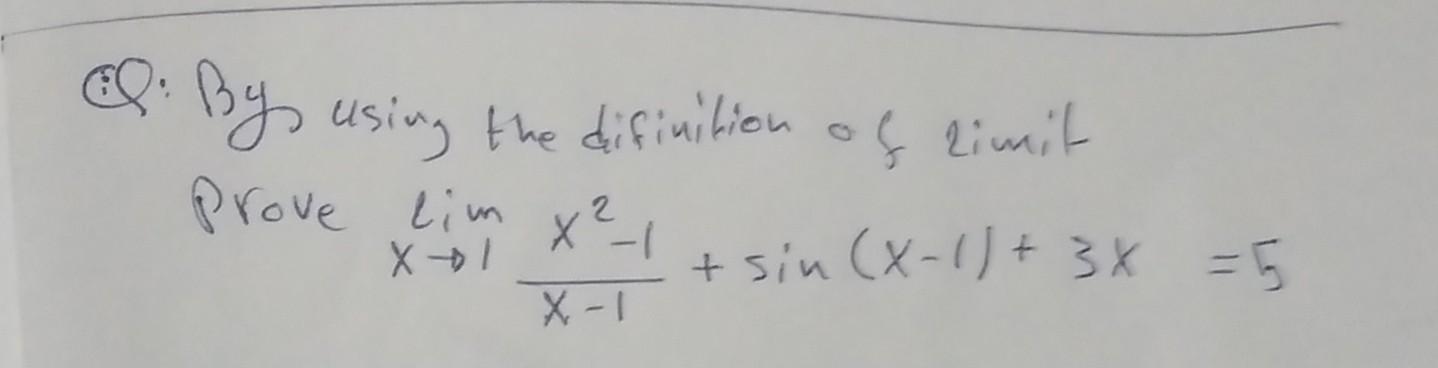 Q: By using the difinition of limit
Prove lim x→1 x²-1 / x-1 + sin (x-1) + 3x = 5